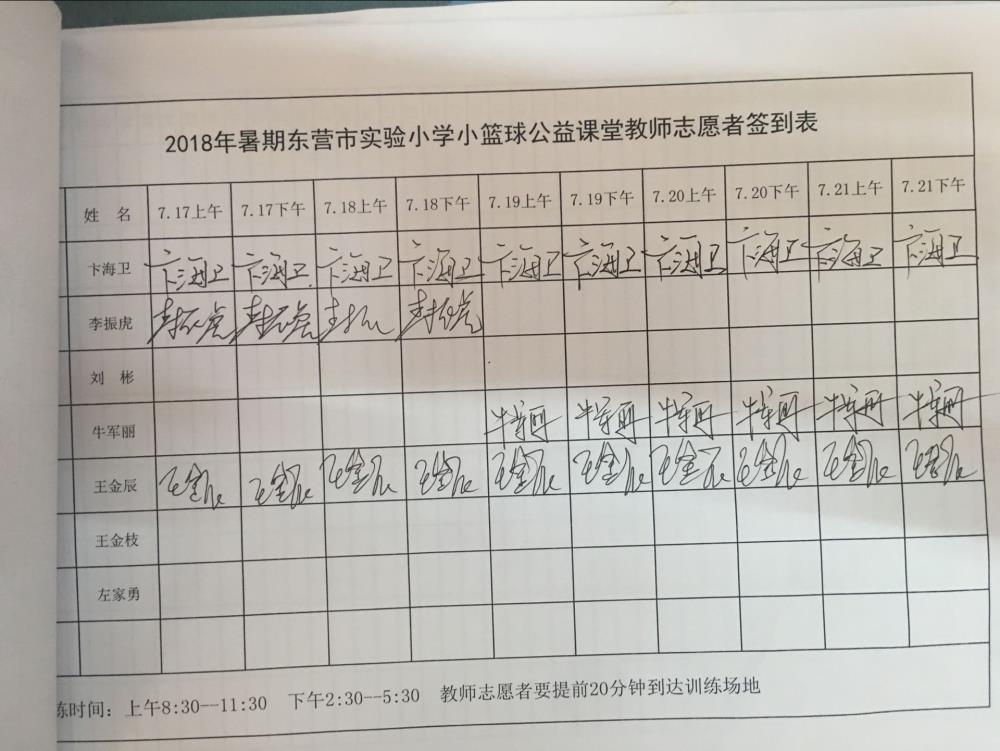 2018年暑期东营市实验小学小篮球公益课堂教师志愿者签到表
姓 名 7.17上午 7.17下午 7.18上午 7.18下午 7.19上午 7.19下午 7.20上午 7.20下午 7.21上午 7.21下午
卞海卫 卞海卫 卞海卫 卞海卫 卞海卫 卞海卫 卞海卫 卞海卫 卞海卫 卞海卫 卞海卫
李振虎 李振虎 李振虎 李振虎
刘 彬
牛军丽 牛军丽 牛军丽 牛军丽 牛军丽 牛军丽 牛军丽
王金辰 王金辰 王金辰 王金辰 王金辰 王金辰 王金辰 王金辰 王金辰 王金辰 王金辰
王金枝
左家勇
练时间：上午8:30--11:30 下午2:30--5:30 教师志愿者要提前20分钟到达训练场地